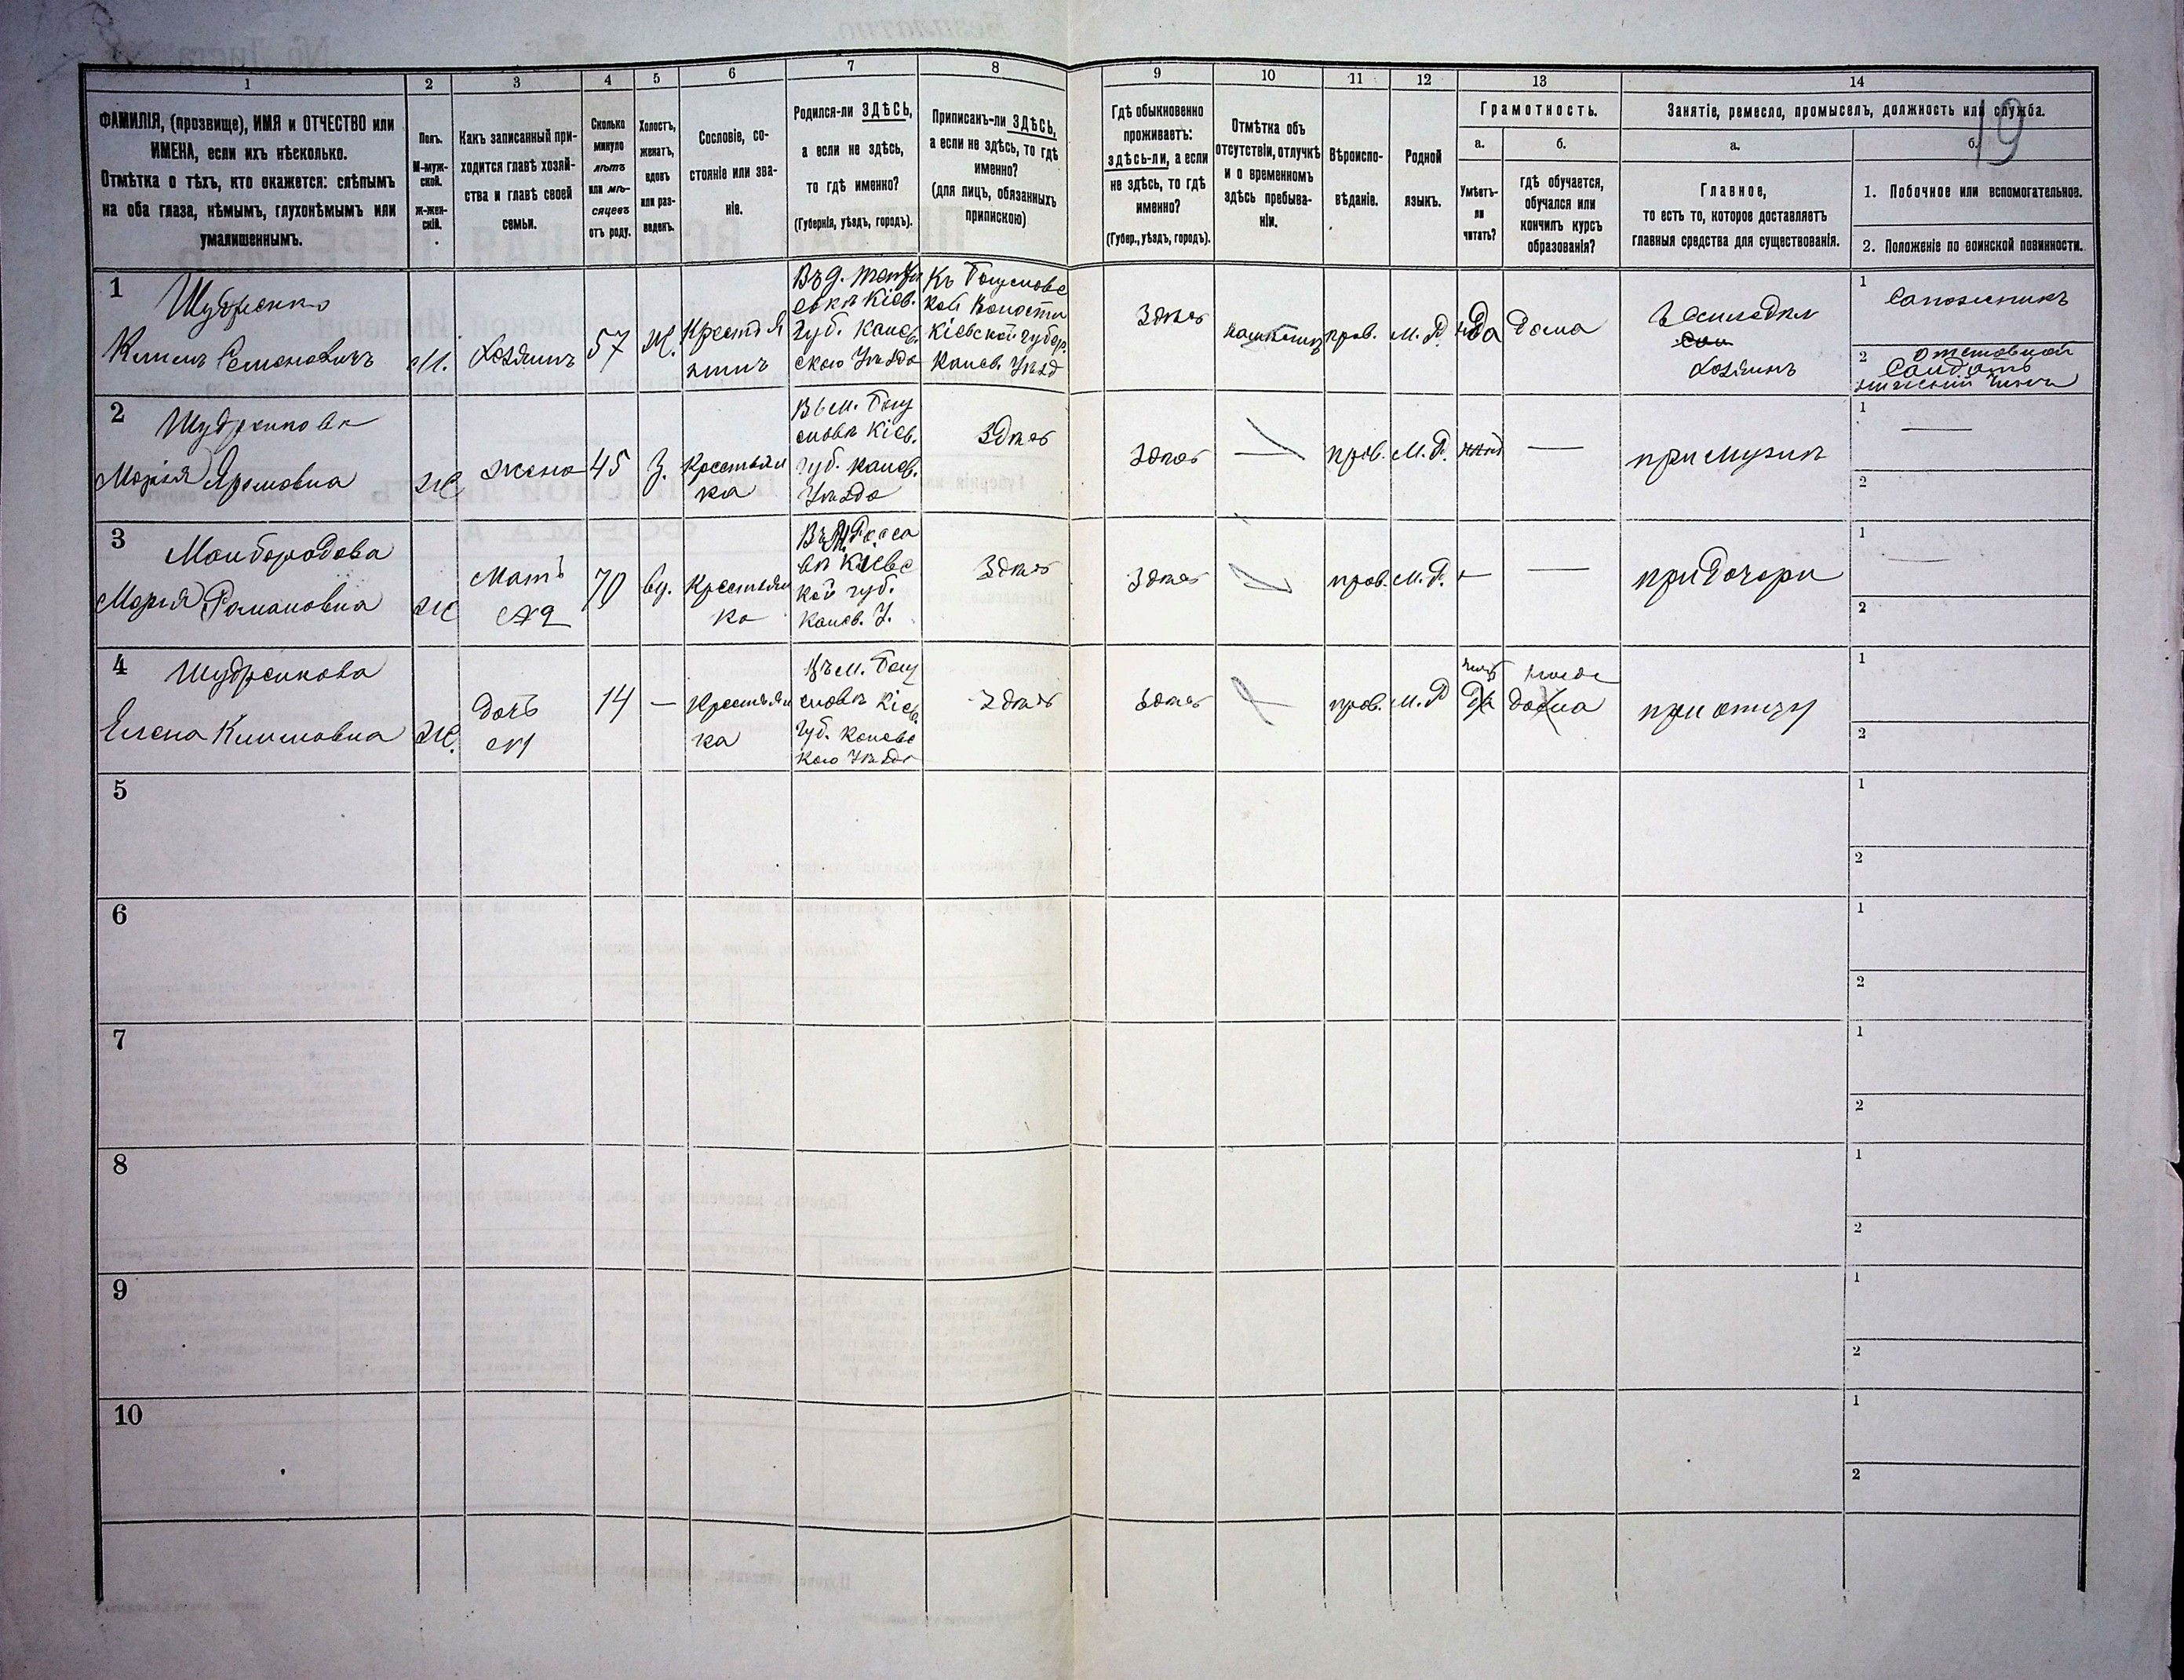 1 2 3 4 5 6 7 8 9 10 11 12 13 14
ФАМИЛІЯ, (прозвище), ИМЯ и ОТЧЕСТВО или
ИМЕНА, если ихъ нѣсколько.
Отмѣтка о тѣхъ, кто окажется: слѣпымъ
на оба глаза, нѣмымъ, глухонѣмымъ или
умалишеннымъ.
Полъ.
М-муж-
ской.
Ж-жен-
скій.
Какъ записанный при-
ходится главѣ хозяй-
ства и главѣ своей
семьи.
Сколько
минуло
лѣтъ
или мѣ-
сяцевъ
отъ роду.
Холостъ,
женатъ,
вдовъ
или раз-
веденъ.
Сословіе, со-
стояніе или зва-
ніе.
Родился-ли ЗДѢСЬ,
а если не здѣсь,
то гдѣ именно?
(Губернія, уѣздъ, городъ).
Приписанъ-ли ЗДѢСЬ,
а если не здѣсь, то гдѣ
именно?
(для лицъ, обязанныхъ
припискою)
Гдѣ обыкновенно
проживаетъ:
здѣсь-ли, а если
не здѣсь, то гдѣ
именно?
(Губер., уѣздъ, городъ).
Отмѣтка объ
отсутствіи, отлучкѣ
и о временномъ
здѣсь пребыва-
ніи.
Вѣроиспо-
вѣданіе.
Родной
языкъ.
Грамотность.
а.
Умѣетъ-
ли
читать?
б.
гдѣ обучается,
обучался или
кончилъ курсъ
образованія?
Занятіе, ремесло, промыселъ, должность или служба.
19
а.
Главное,
то есть то, которое доставляетъ
главныя средства для существованія.
б.
1. Побочное или вспомогательное.
2. Положеніе по воинской повинности.
1
Климъ Семеновичъ
М.
Хозяинъ
57
Ж.
Крестья
нинъ
губ. Канев.
скаго Уѣзда
кой Волости
Кіевской губер.
Канев. Уѣзд
Здѣсь
прав.
М. Р.
Да
Дома
Хозяинъ
1
Сапожникъ
2
отставной
Солдатъ
2
Марія
Ж
жена
45
З.
Крестьян
ка
губ. Канев.
Уѣзда
Здѣсь
Здѣсь
—
прав.
М. Р.
—
при мужѣ
1
—
2
3
Майбородова
Марія Романовна
Ж
Мать
№ 2
70
вд.
Крестьян
ка
кой губ.
Канев. У.
Здѣсь
Здѣсь
прав.
М. Р.
—
—
при дочери
1
—
2
4
Елена Климовна
Ж.
дочь
№1
14
—
Крестьян
ка
губ. Каневс
каго Уѣзда
Здѣсь
Здѣсь
прав.
М. Р
Да
дома
при отцу
1
2
5
1
2
6
1
2
7
1
2
8
1
2
9
1
2
10
1
2